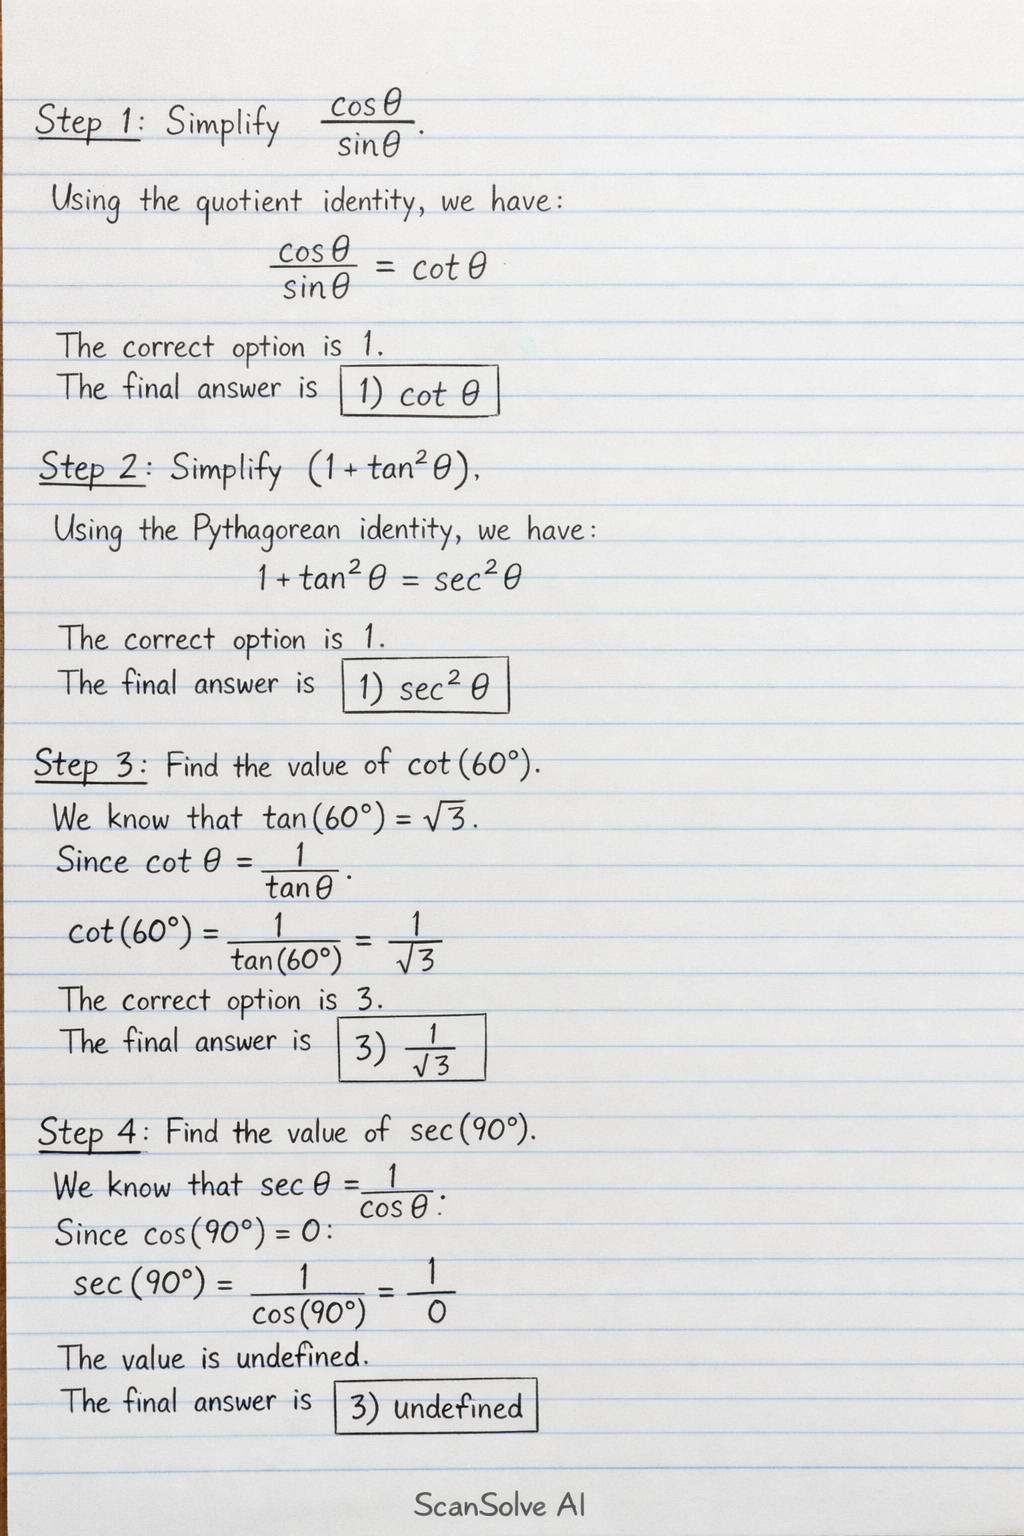 Step 1: Simplify cosθ/sinθ.
Using the quotient identity, we have:
cosθ/sinθ = cotθ
The correct option is 1.
The final answer is 1) cot θ
Step 2: Simplify (1 + tan²θ).
Using the Pythagorean identity, we have:
1 + tan²θ = sec²θ
The correct option is 1.
The final answer is 1) sec² θ
Step 3: Find the value of cot(60°).
We know that tan(60°) = √3.
Since cot θ = 1/tanθ.
cot(60°) = 1/tan(60°) = 1/√3
The correct option is 3.
The final answer is 3) 1/√3
Step 4: Find the value of sec(90°).
We know that sec θ = 1/cos θ.
Since cos(90°) = 0:
sec(90°) = 1/cos(90°) = 1/0
The value is undefined.
The final answer is 3) undefined
ScanSolve AI